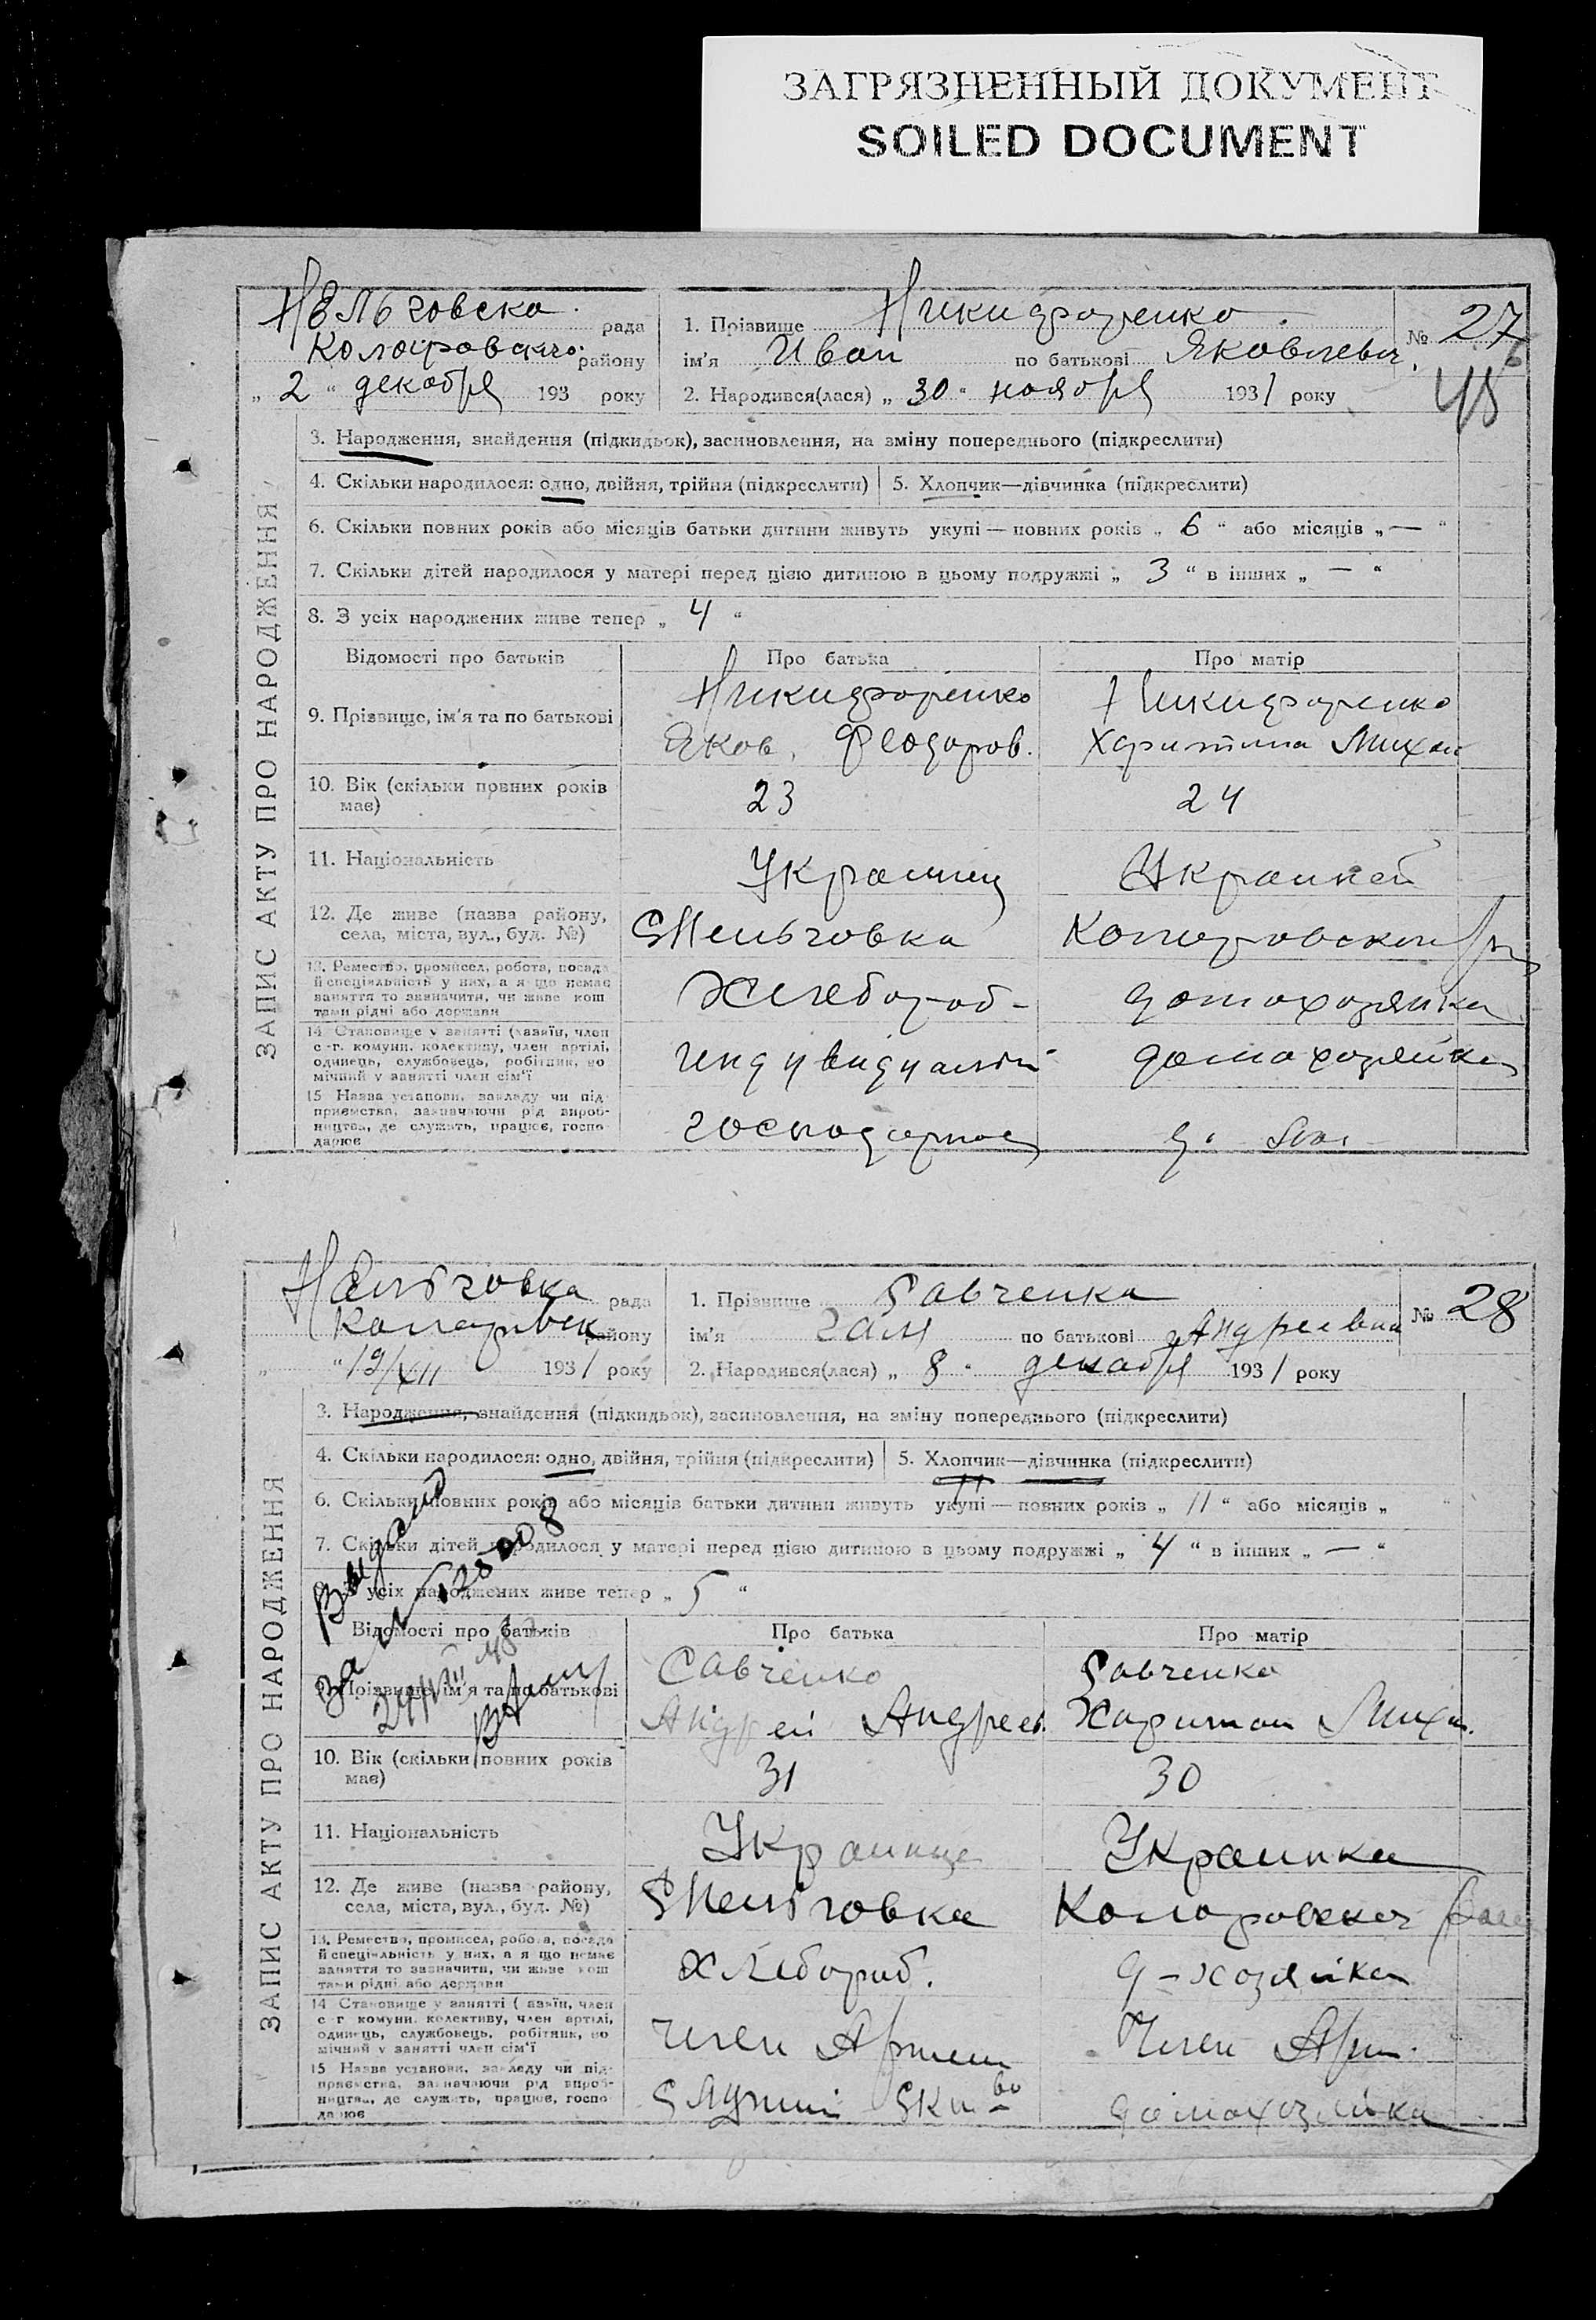 ЗАГРЯЗНЕННЫЙ ДОКУМЕНТ
SOILED DOCUMENT
ЗАПИС АКТУ ПРО НАРОДЖЕННЯ
Нельговска рада
району
„ 2 “ декабря 193 року
1. Прізвище Никифоренко
№ 27
ім'я Иван по батькові Яковлевич
2. Народився(лася) „ 30 “ ноября 1931 року
3. Народження, знайдення (підкидьок), засиновлення, на зміну попереднього (підкреслити)
4. Скільки народилося: одно, двійня, трійня (підкреслити)
5. Хлопчик—дівчинка (підкреслити)
6. Скільки повних років або місяців батьки дитини живуть укупі — повних років „ 6 “ або місяців „ — “
7. Скільки дітей народилося у матері перед цією дитиною в цьому подружжі „ 3 “ в інших „ — “
8. З усіх народжених живе тепер „ 4 “
Відомості про батьків Про батька Про матір
9. Прізвище, ім'я та по батькові
Никифоренко Никифоренко
Яков. Феодоров. Харитина Михаи
10. Вік (скільки повних років має) 23 24
11. Національність Украинец
12. Де живе (назва району, села, міста, вул., буд. №) С Нельговка
13. Ремество, промисел, робота, посада й спеціяльність у них, а я що немає заняття то зазначити, чи живе кош тами рідні або держави Хлебороб - домохозяйка
14 Становище у занятті (хазяїн, член с -г. комуни, колективу, член артілі, одинець, службовець, робітник, по мічний у занятті член сім'ї домохозяйка
15 Назва установи, закладу чи під- приємства, зазначаючи рід вироб- ництва, де служить, працює, госпо- дарює
Нельговка рада
району
„ “ 19/XII 1931 року
1. Прізвище Савченко
№ 28
ім'я по батькові Андреевна
2. Народився(лася) „ 8 “ декабря 1931 року
3. Народження, знайдення (підкидьок), засиновлення, на зміну попереднього (підкреслити)
4. Скільки народилося: одно, двійня, трійня (підкреслити)
5. Хлопчик—дівчинка (підкреслити)
6. Скільки повних років або місяців батьки дитини живуть укупі — повних років „ 11 “ або місяців „ “
7. Скільки дітей народилося у матері перед цією дитиною в цьому подружжі „ 4 “ в інших „ — “
усіх народжених живе тепер „ 5 “
Відомості про батьків Про батька Про матір
Прізвище, ім'я та по батькові
Савченко Савченко
Андрей Андреев. Михаи.
10. Вік (скільки повних років має) 31 30
11. Національність Украинец Украинка
12. Де живе (назва району, села, міста, вул., буд. №) С Нельговка
13. Ремество, промисел, робота, посада й спеціяльність у них, а я що немає заняття то зазначити, чи живе кош тами рідні або держави Хлебороб. д-хозяйка
14 Становище у занятті (хазяїн, член с г. комуни, колективу, член артілі, одинець, службовець, робітник, по мічний у занятті член сім'ї Член Артели Член Арт.
15 Назва установи, закладу чи під- приємства, зазначаючи рід вироб- ництва, де служить, працює, госпо- дарює домохозяйка
ЗАПИС АКТУ ПРО НАРОДЖЕННЯ